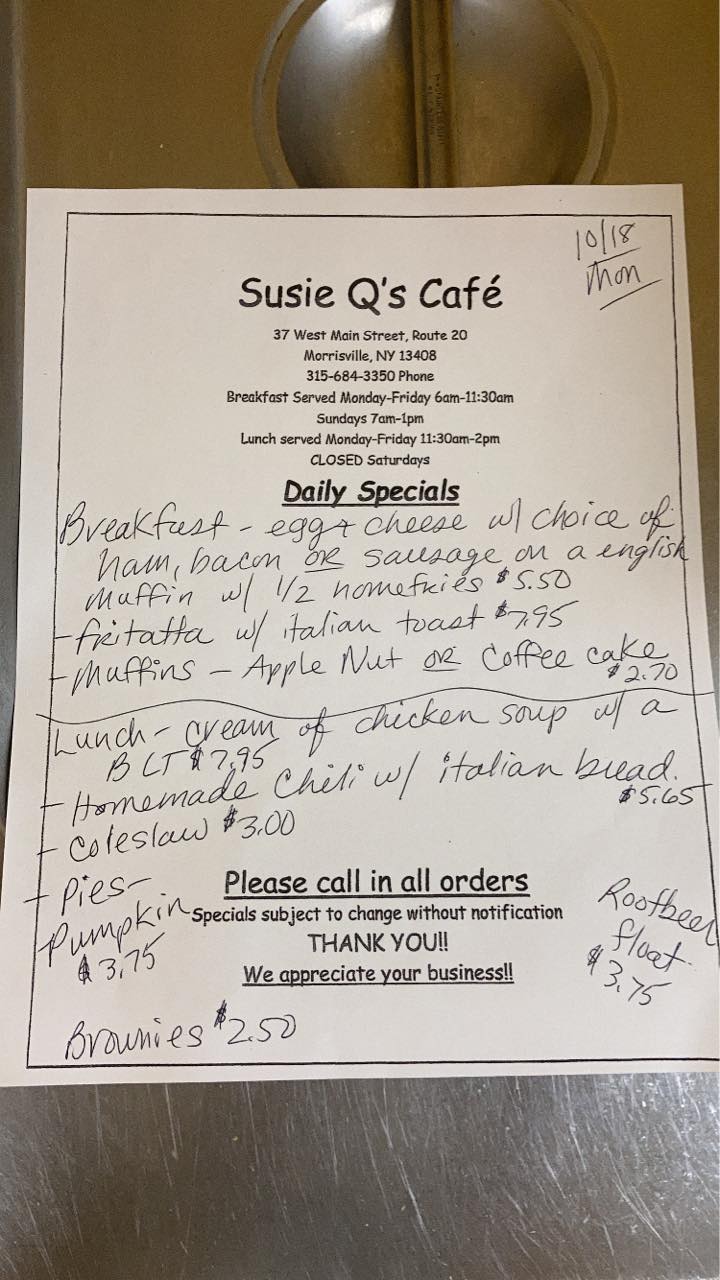 10/18
Mon
Susie Q's Café
37 West Main Street, Route 20
Morrisville, NY 13408
315-684-3350 Phone
Breakfast Served Monday-Friday 6am-11:30am
Sundays 7am-1pm
Lunch served Monday-Friday 11:30am-2pm
CLOSED Saturdays
Daily Specials
Breakfast - egg + cheese w/ choice of
ham, bacon OR sausage on a english
muffin w/ 1/2 homefries $5.50
- fritatta w/ italian toast $7.95
- Muffins - Apple Nut OR Coffee cake
$2.70
Lunch - cream of chicken soup w/ a
BLT $7.95
- Homemade Chili w/ italian bread.
$5.65
- Coleslaw $3.00
- Pies -
Pumpkin
$3.75
Please call in all orders
Specials subject to change without notification
THANK YOU!!
We appreciate your business!!
Rootbeer
float
$3.75
Brownies $2.50